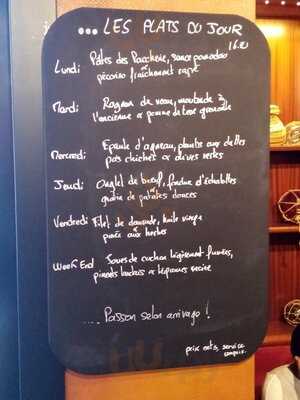 ... LES PLATS DU JOUR
16.20
Lundi Pâtes des Paccherie, sauce pomodoro
pécorino fraîchement rapé
Mardi Rognon de veau, moutarde à
l'ancienne & pomme de terre grenaille
Mercredi Epaule d'agneau, planche aux dattes
pois chiches & olives vertes
Jeudi Onglet de bœuf, fondue d'échalottes
gratin de patates douces
Vendredi Filet de daurade, huile vierge
purée aux herbes
Week End Joues de cochon légèrement fumées,
& légumes racine
.... Poisson selon arrivage !
prix nets, service
compris.